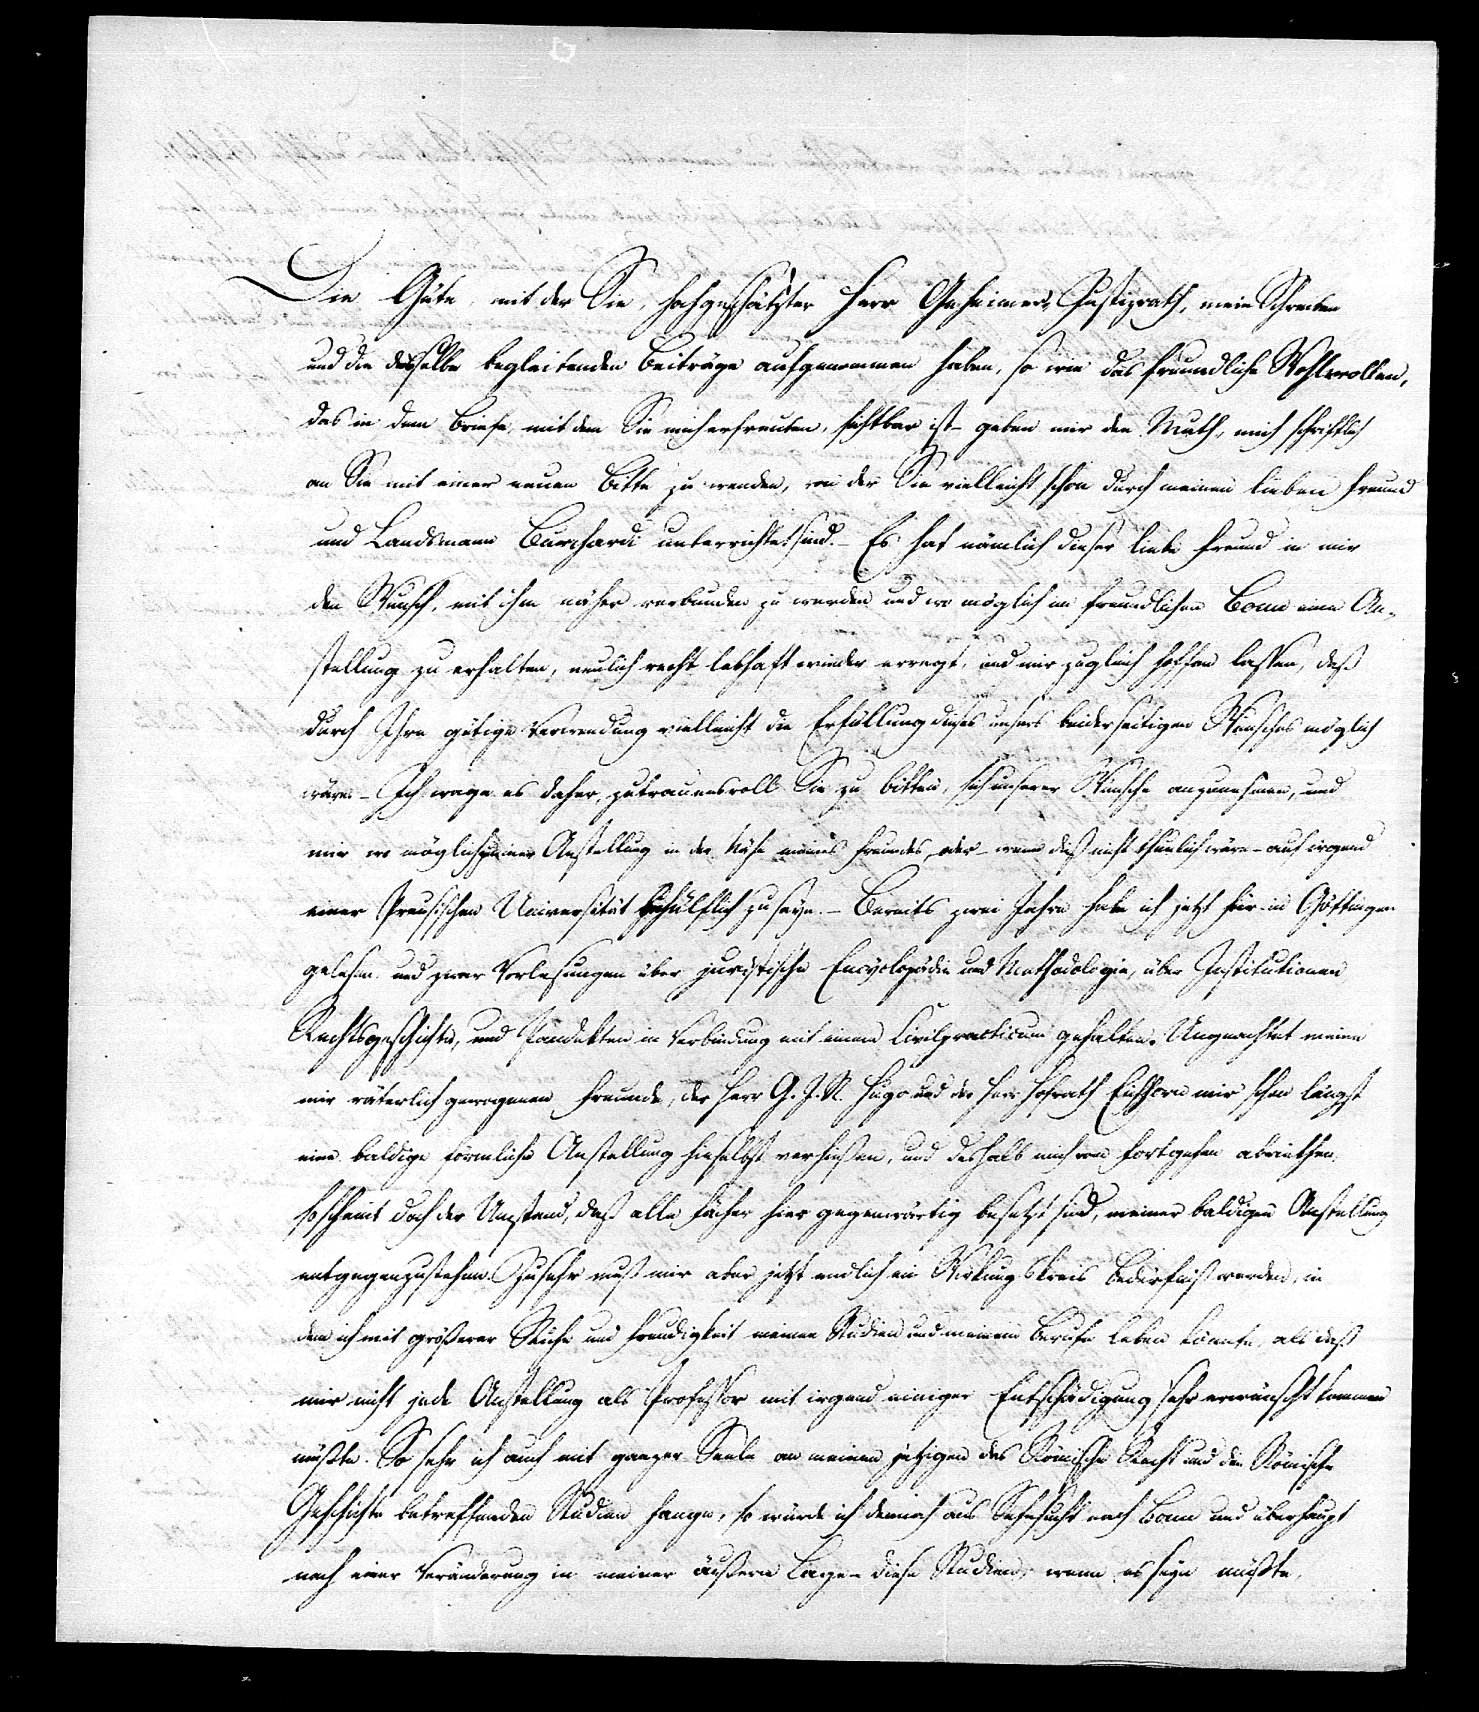 Die Güte, mit der Sie, hochgeschätzter Herr Geheimer Justizrath, mein Schreiben
und die dasselbe begleitenden Beiträge aufgenommen haben, so wie das freundliche Wohlwollen,
das in dem Briefe, mit dem Sie mich erfreuten, sichtbar ist – geben mir den Muth, mich schriftlich
an Sie mit einer neuen Bitte zu wenden, von der Sie vielleicht schon durch meinen lieben Freund
und Landsmann Burchardi unterrichtet sind. – Es hat nämlich dieser liebe Freund in mir
den Wunsch, mit ihm näher verbunden zu werden und wo möglich im freundlichen Bonn eine An-
stellung zu erhalten, neulich recht lebhaft wieder erregt, und mir zugleich hoffen lassen, daß
durch Ihre gütige Verwendung vielleicht die Erfüllung dieses unsers beiderseitigen Wunsches möglich
wäre. – Ich wage es daher, zutrauensvoll Sie zu bitten, sich unserer Wünsche anzunehmen, und
mir wo möglich zu einer Anstellung in der Nähe meines Freundes, oder – wenn dieß nicht thunlich wäre – auf irgend
einer Preusischen Universität behülflich zu seyn. – Bereits zwei Jahre habe ich jetzt hier in Göttingen
gelesen und zwar Vorlesungen über juristische Encyclopädie und Methodologie, über Institutionen,
Rechtsgeschichte, und Pandekten in Verbindung mit einem Civilpracticum gehalten. Ungeachtet meine
mir väterlich gewogenen Freunde, der Herr G. J. R. Hugo und der Herr Hofrath Eichhorn mir schon längst
eine baldige förmliche Anstellung hieselbst verhießen, und deshalb mich vom Fortgehen abriethen,
so scheint doch der Umstand, daß alle Fächer hier gegenwärtig besetzt sind, meiner baldigen Anstellung
entgegenzustehen. Zu sehr muß mir aber jetzt endlich ein Wirkungskreis Bedürfniß werden, in
dem ich mit größerer Ruhe und Freudigkeit meinen Studien und meinem Berufe leben könnte, als daß
mir nicht jede Anstellung als Professor mit irgend einiger Entschädigung sehr erwünscht kommen
müßte. So sehr ich auch mit ganzer Seele an meinen jetzigen das Römische Recht und die Römische
Geschichte betreffenden Studien hange, so würde ich dennoch aus Sehnsucht nach Bonn und überhaupt
nach einer Veränderung in meiner äußern Lage – diese Studien, wenn es seyn müßte,